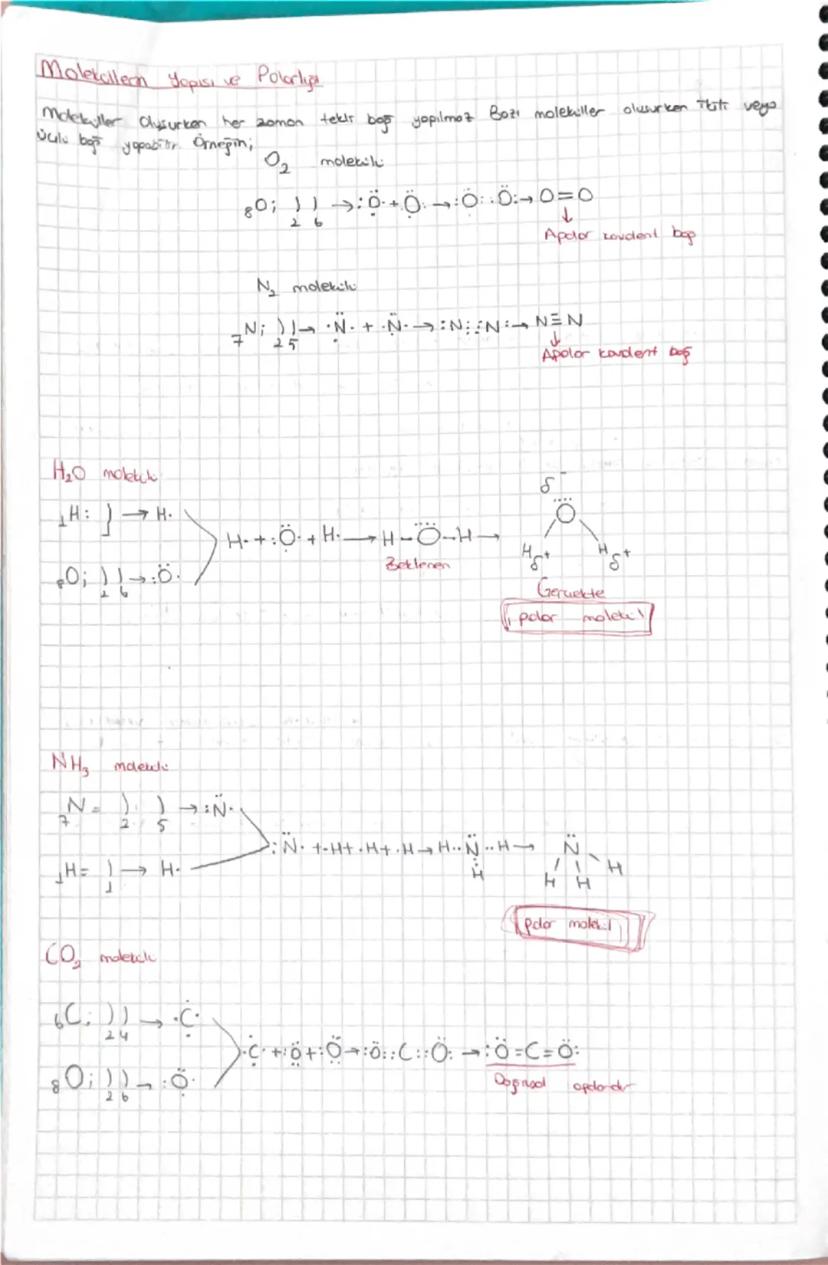 Moleküllerin Yapısı ve Polarlığı
Moleküller Oluşurken her zaman tekli bağ yapılmaz Bazı moleküller oluşurken ikili veya
üçlü bağ yapabilir. Örneğin;
O₂ molekülü
₈O; ) ) → :Ö· + ·Ö: → :Ö::Ö: → O=O
2 6
Apolar kovalent bağ
N₂ molekülü
₇N; ) ) → ·N̈· + ·N̈· → :N⋮⋮N: → N≡N
2 5
Apolar kovalent bağ
H₂O molekülü
δ⁻
₁H: ) → H·
H· + :Ö· + H· → H–Ö–H → O
₈O; ) ) → :Ö·
2 6
Beklenen
H δ⁺ H δ⁺
Gerçekte
polar molekül
NH₃ molekülü
₇N= ) ) → :N̈·
2 5
:N̈· + ·H + ·H + ·H → H··N̈··H → N̈
H
₁H= ) → H·
1
H H H
polar molekül
CO₂ molekülü
₆C; ) ) → ·C·
2 4
·C· + :Ö + :Ö → :Ö::C::Ö: → :Ö=C=Ö:
₈O; ) ) → :Ö·
2 6
Doğrusal apolardır